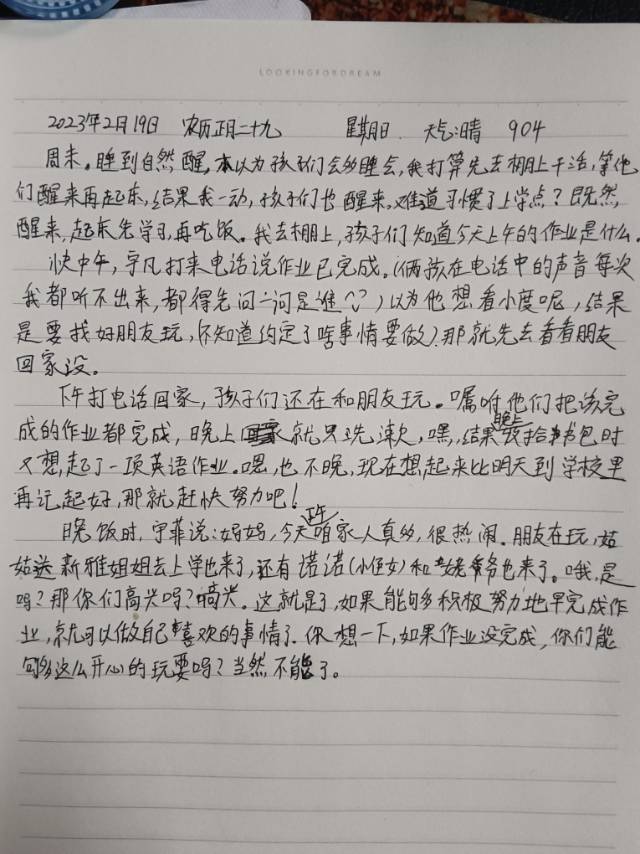 LOOKINGFORDREAM
2023年2月19日 农历正月二十九 星期日 天气:晴 904
周末。睡到自然醒,本以为孩子们会多睡会,我打算先去棚上干活,等他
们醒来再起床,结果我一动,孩子们也醒来,难道习惯了上学点?既然
醒来,起床先学习,再吃饭。我去棚上,孩子们知道今天上午的作业是什么。
快中午,宇凡打来电话说作业已完成。(俩孩在电话中的声音每次
我都听不出来,都得先问一问是谁^^)以为他想看小度呢,结果
是要找好朋友玩,(不知道约定了啥事情要做)那就先去看看朋友
回家没。
下午打电话回家,孩子们还在和朋友玩。嘱咐他们把该完
成的作业都完成,晚上就只洗漱,嘿,结果晚上收拾书包时
又想起了一项英语作业。嗯,也不晚,现在想起来比明天到学校里
再记起好,那就赶快努力吧!
晚饭时,宇菲说:妈妈,今天正午咱家人真多,很热闹。朋友在玩,姑
姑送新雅姐姐去上学也来了,还有诺诺(小侄女)和姥爷也来了。哦,是
吗?那你们高兴吗?高兴。这就是了,如果能够多积极努力地早完成作
业,就可以做自己喜欢的事情了。你想一下,如果作业没完成,你们能
够这么开心的玩耍吗?当然不能了。